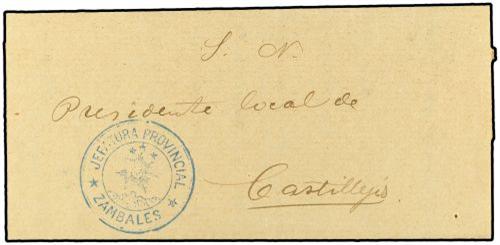 S. N.
Presidente local de
Castillejos
JEFATURA PROVINCIAL
ZAMBALES